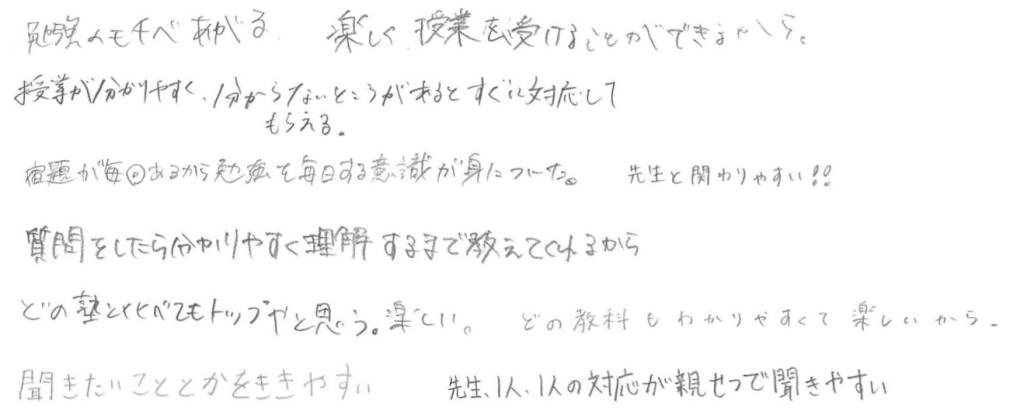 勉強のモチベあがる 楽しく授業を受けることができるから。
授業が分かりやすく、分からないところがあるとすぐに対応して
もらえる。
宿題が毎回あるから勉強を毎日する意識が身についた。 先生と関わりやすい!!
質問をしたら分かりやすく理解するまで教えてくれるから
どの塾とくらべてもトップやと思う。楽しい。 どの教科もわかりやすくて楽しいから。
聞きたいこととかをききやすい 先生、1人、1人の対応が親せつで聞きやすい